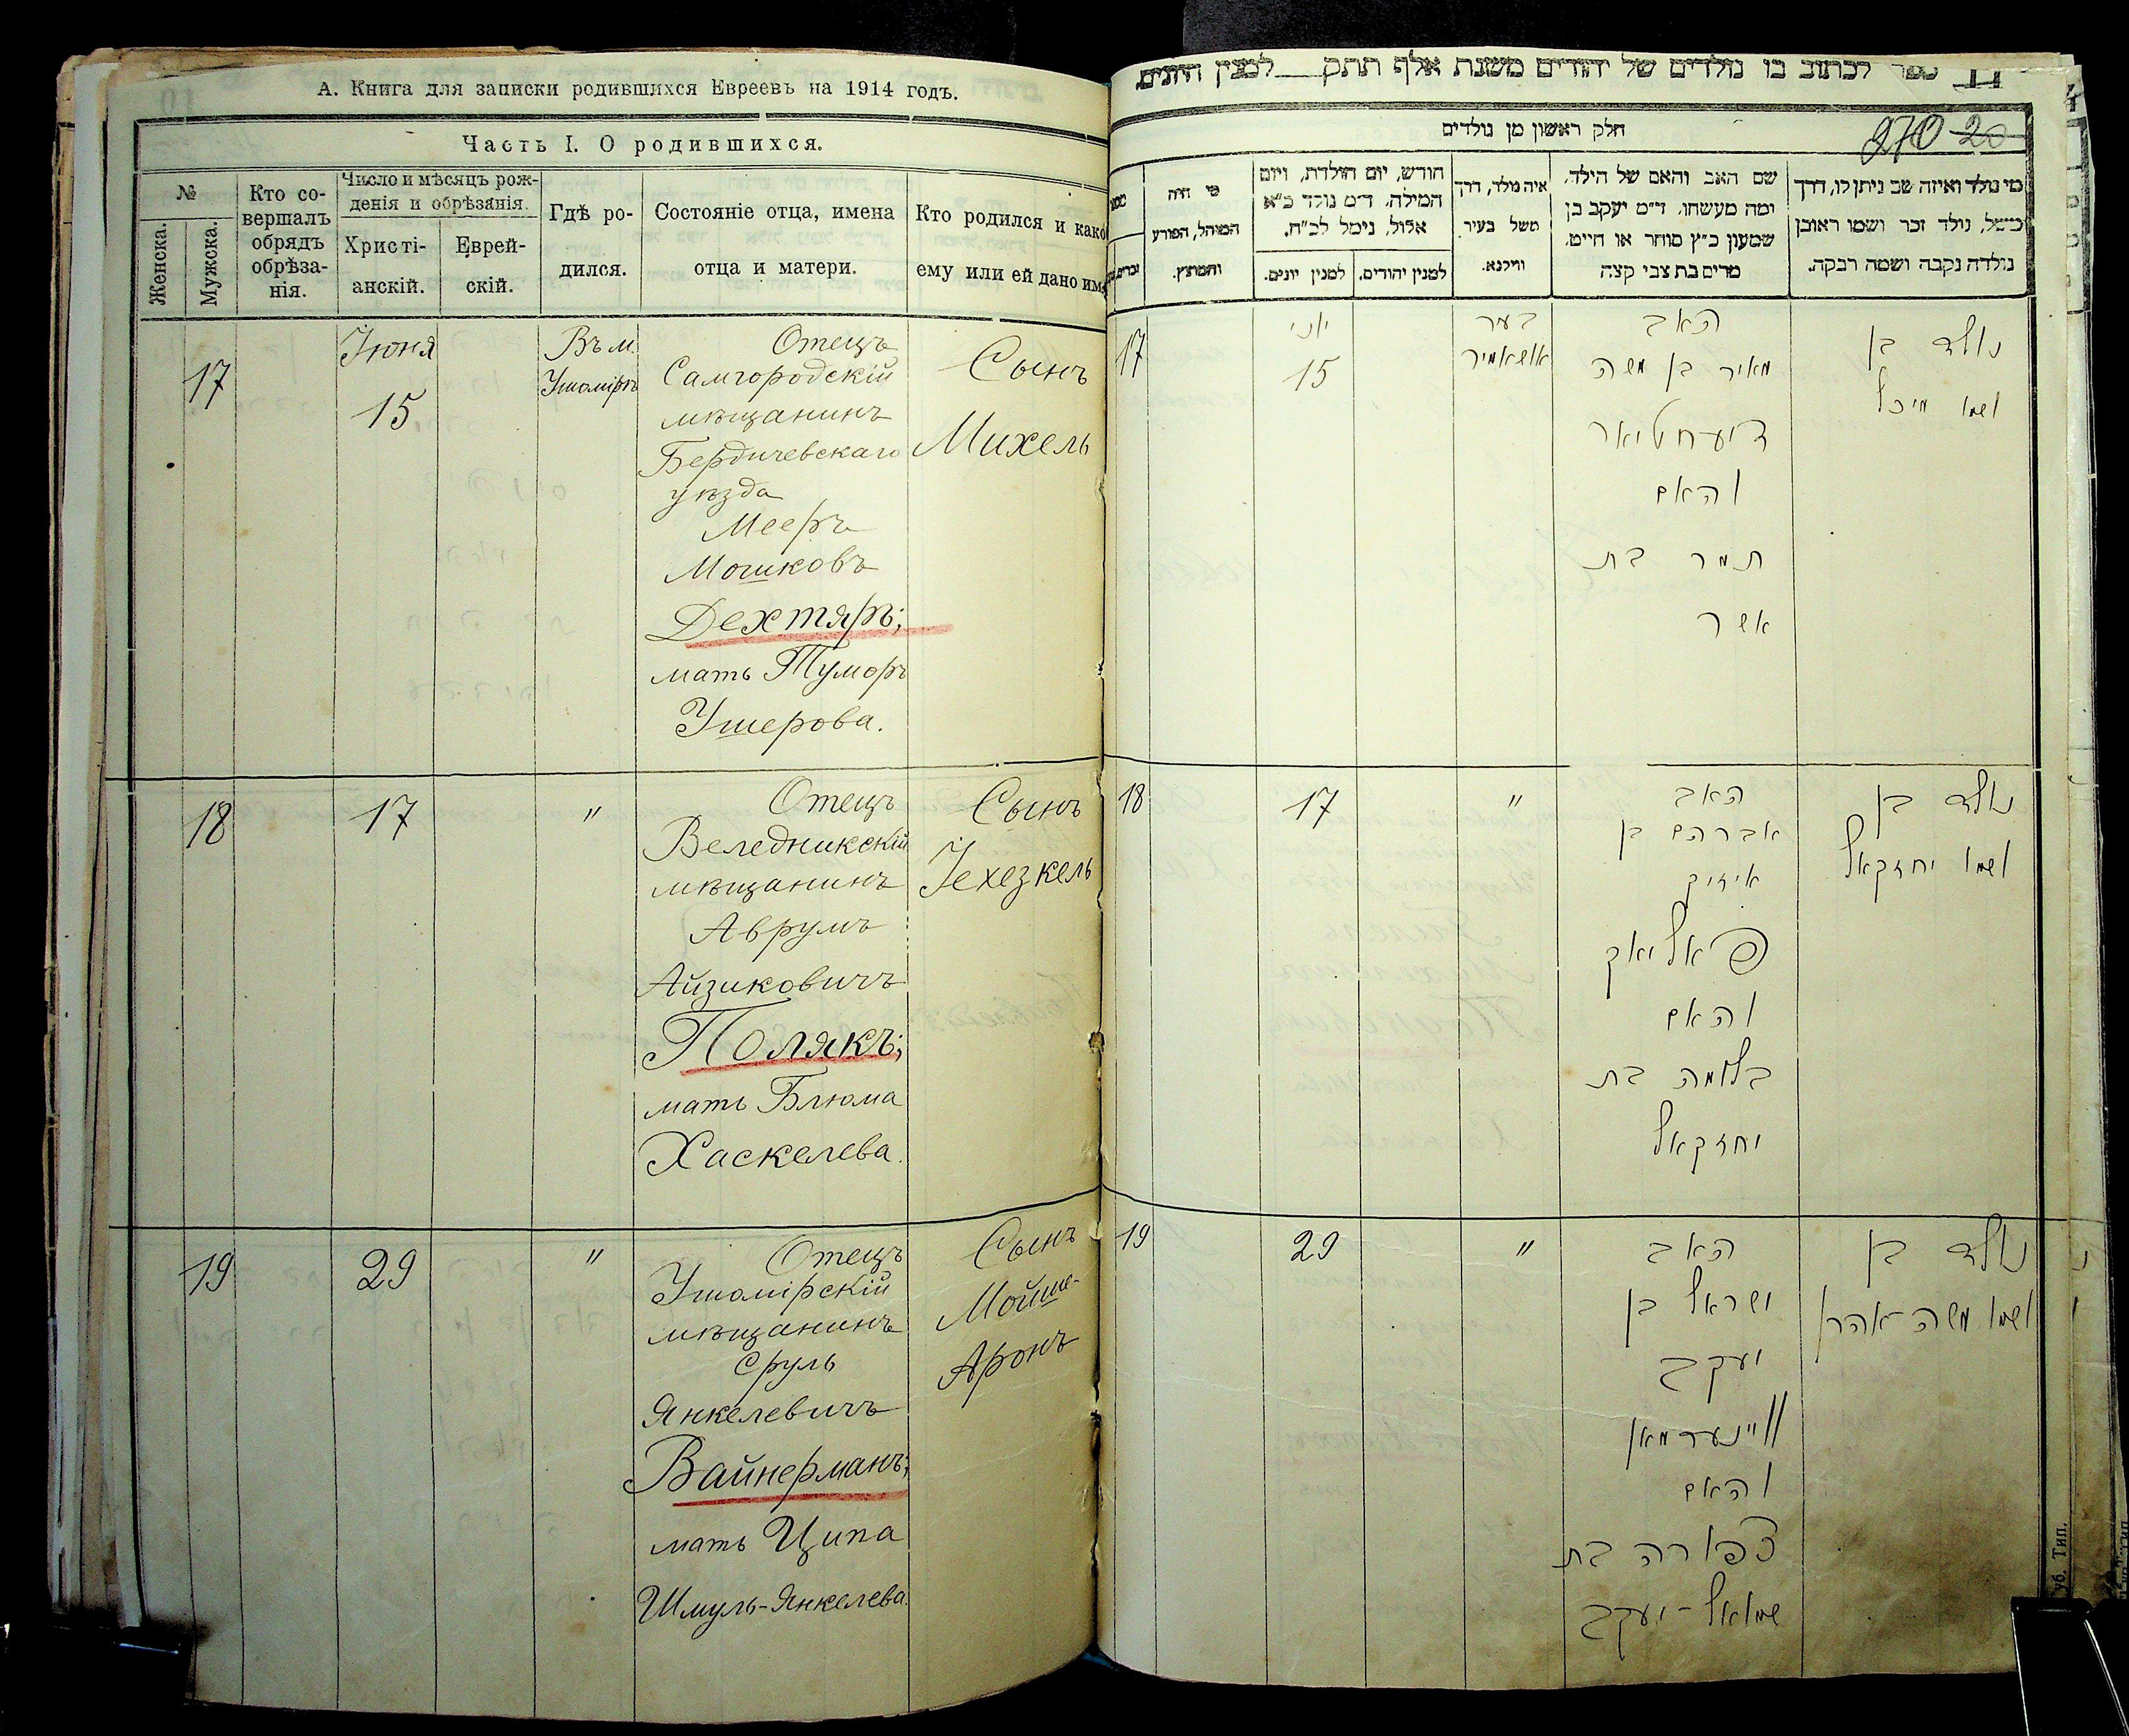 А. Книга для записки родившихся Евреевъ на 1914 годъ.
Часть I. О родившихся.
№
Женска.
Мужска.
Кто со-
вершалъ
обрядъ
обрѣза-
нія.
Число и мѣсяцъ рож-
денія и обрѣзанія.
Христі-
анскій.
Еврей-
скій.
Гдѣ ро-
дился.
Состояніе отца, имена
отца и матери.
Кто родился и како
ему или ей дано имя
17
Іюня
15
Въ м.
Ушомірѣ
Отецъ
Самгородскій
мѣщанинъ
Бердичевскаго
уѣзда
Мееръ
Мошковъ
Дехтяръ;
мать Туморъ
Ушерова.
Сынъ
Михель
18
17
"
Отецъ
Веледникскій
мѣщанинъ
Аврумъ
Айзиковичъ
Полякъ;
мать Блюма
Хаскелева.
Сынъ
Іехезкель
19
29
"
Отецъ
Ушомірскій
мѣщанинъ
Сруль
Янкелевичъ
Вайнерманъ;
мать Ципа
Шмуль-Янкелева.
Сынъ
Мойше-
Аронъ
ספר לכתוב בו נולדים של יהודים משנת אלף תתק למנין היונים
11
חלק ראשון מן נולדים
270 20
מי נולד ואיזה שם ניתן לו, דרך
משל, נולד זכר ושמו ראובן
נולדה נקבה ושמה רבקה.
שם האב והאם של הילד,
ומה מעשהו, ד״מ יעקב בן
שמעון כ״ץ סוחר או חייט,
מרים בת צבי קצה
איה נולד, דרך
משל בעיר
ווילנא.
חודש, יום הולדת, ויום
המילה, ד״מ נולד כ״א
אלול, נימל לכ״ח.
למנין יהודים.
למנין יונים.
מי היה
המוהל, הפורע
והמוצץ.
17
יוני
15
בעיר
אושאמיר
האב
מאיר בן משה
דיעחטיאר
והאם
תמר בת
אשר
נולד בן
ושמו מיכל
18
17
"
האב
אברהם בן
אייזיק
פאליאק
והאם
בלומה בת
יחזקאל
נולד בן
ושמו יחזקאל
19
29
"
האב
ישראל בן
יעקב
ווינערמאן
והאם
צפורה בת
שמואל-יעקב
נולד בן
ושמו משה-אהרן
уб. Тип.